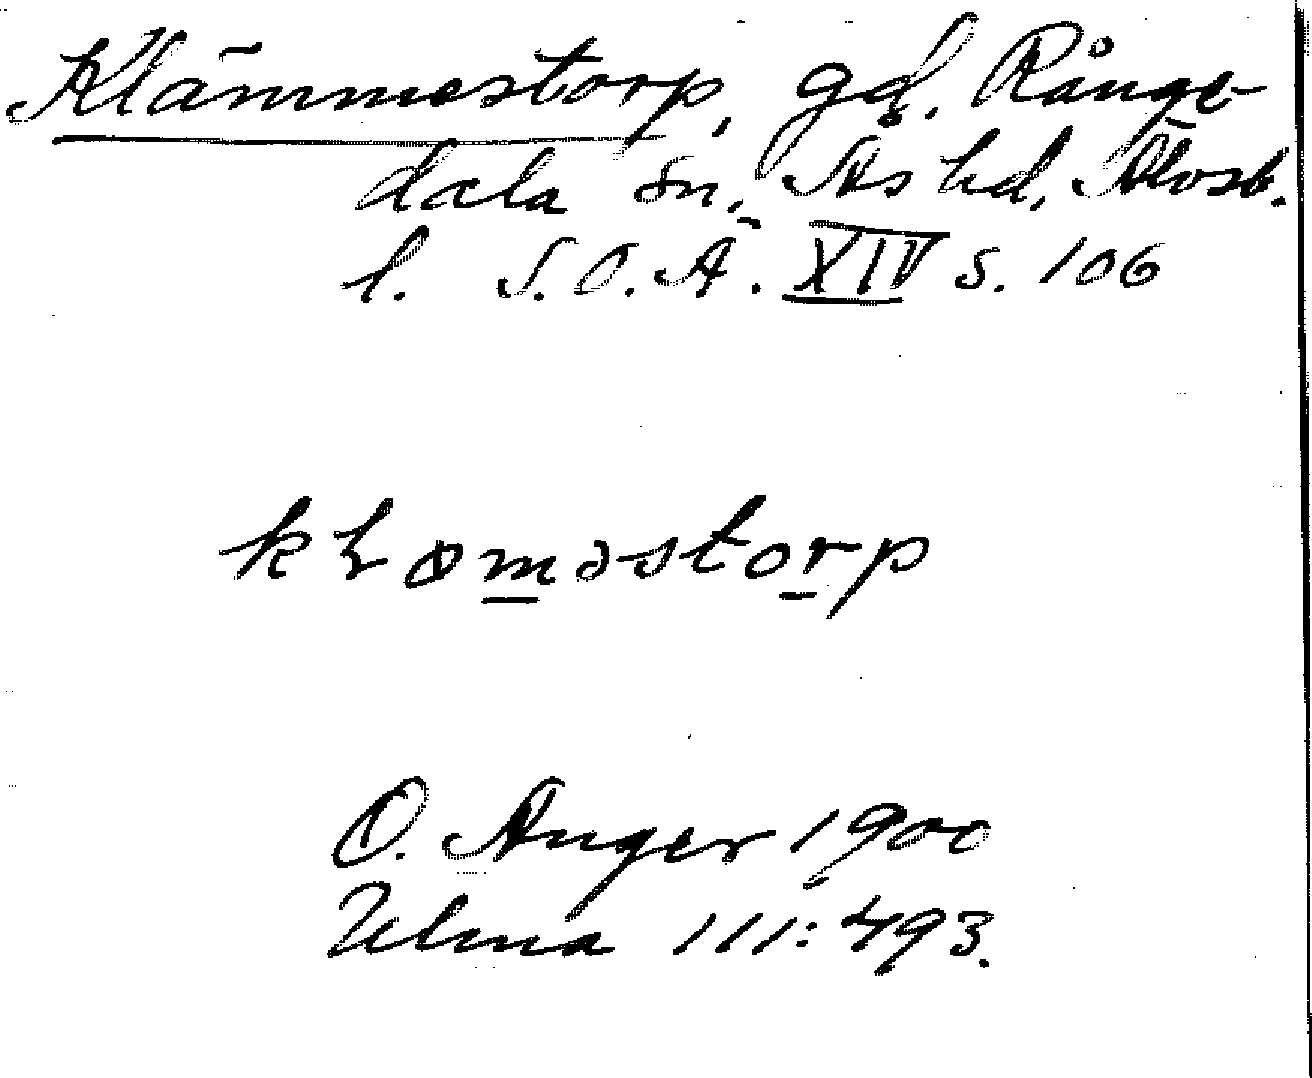 Klämmestorp, gd. Rånge-
dala sn., Ås hd, Älvsb.
l. S.O.A. XIV s. 106
kɫøməstorp
O. Anger 1900
Ulma 111:493.